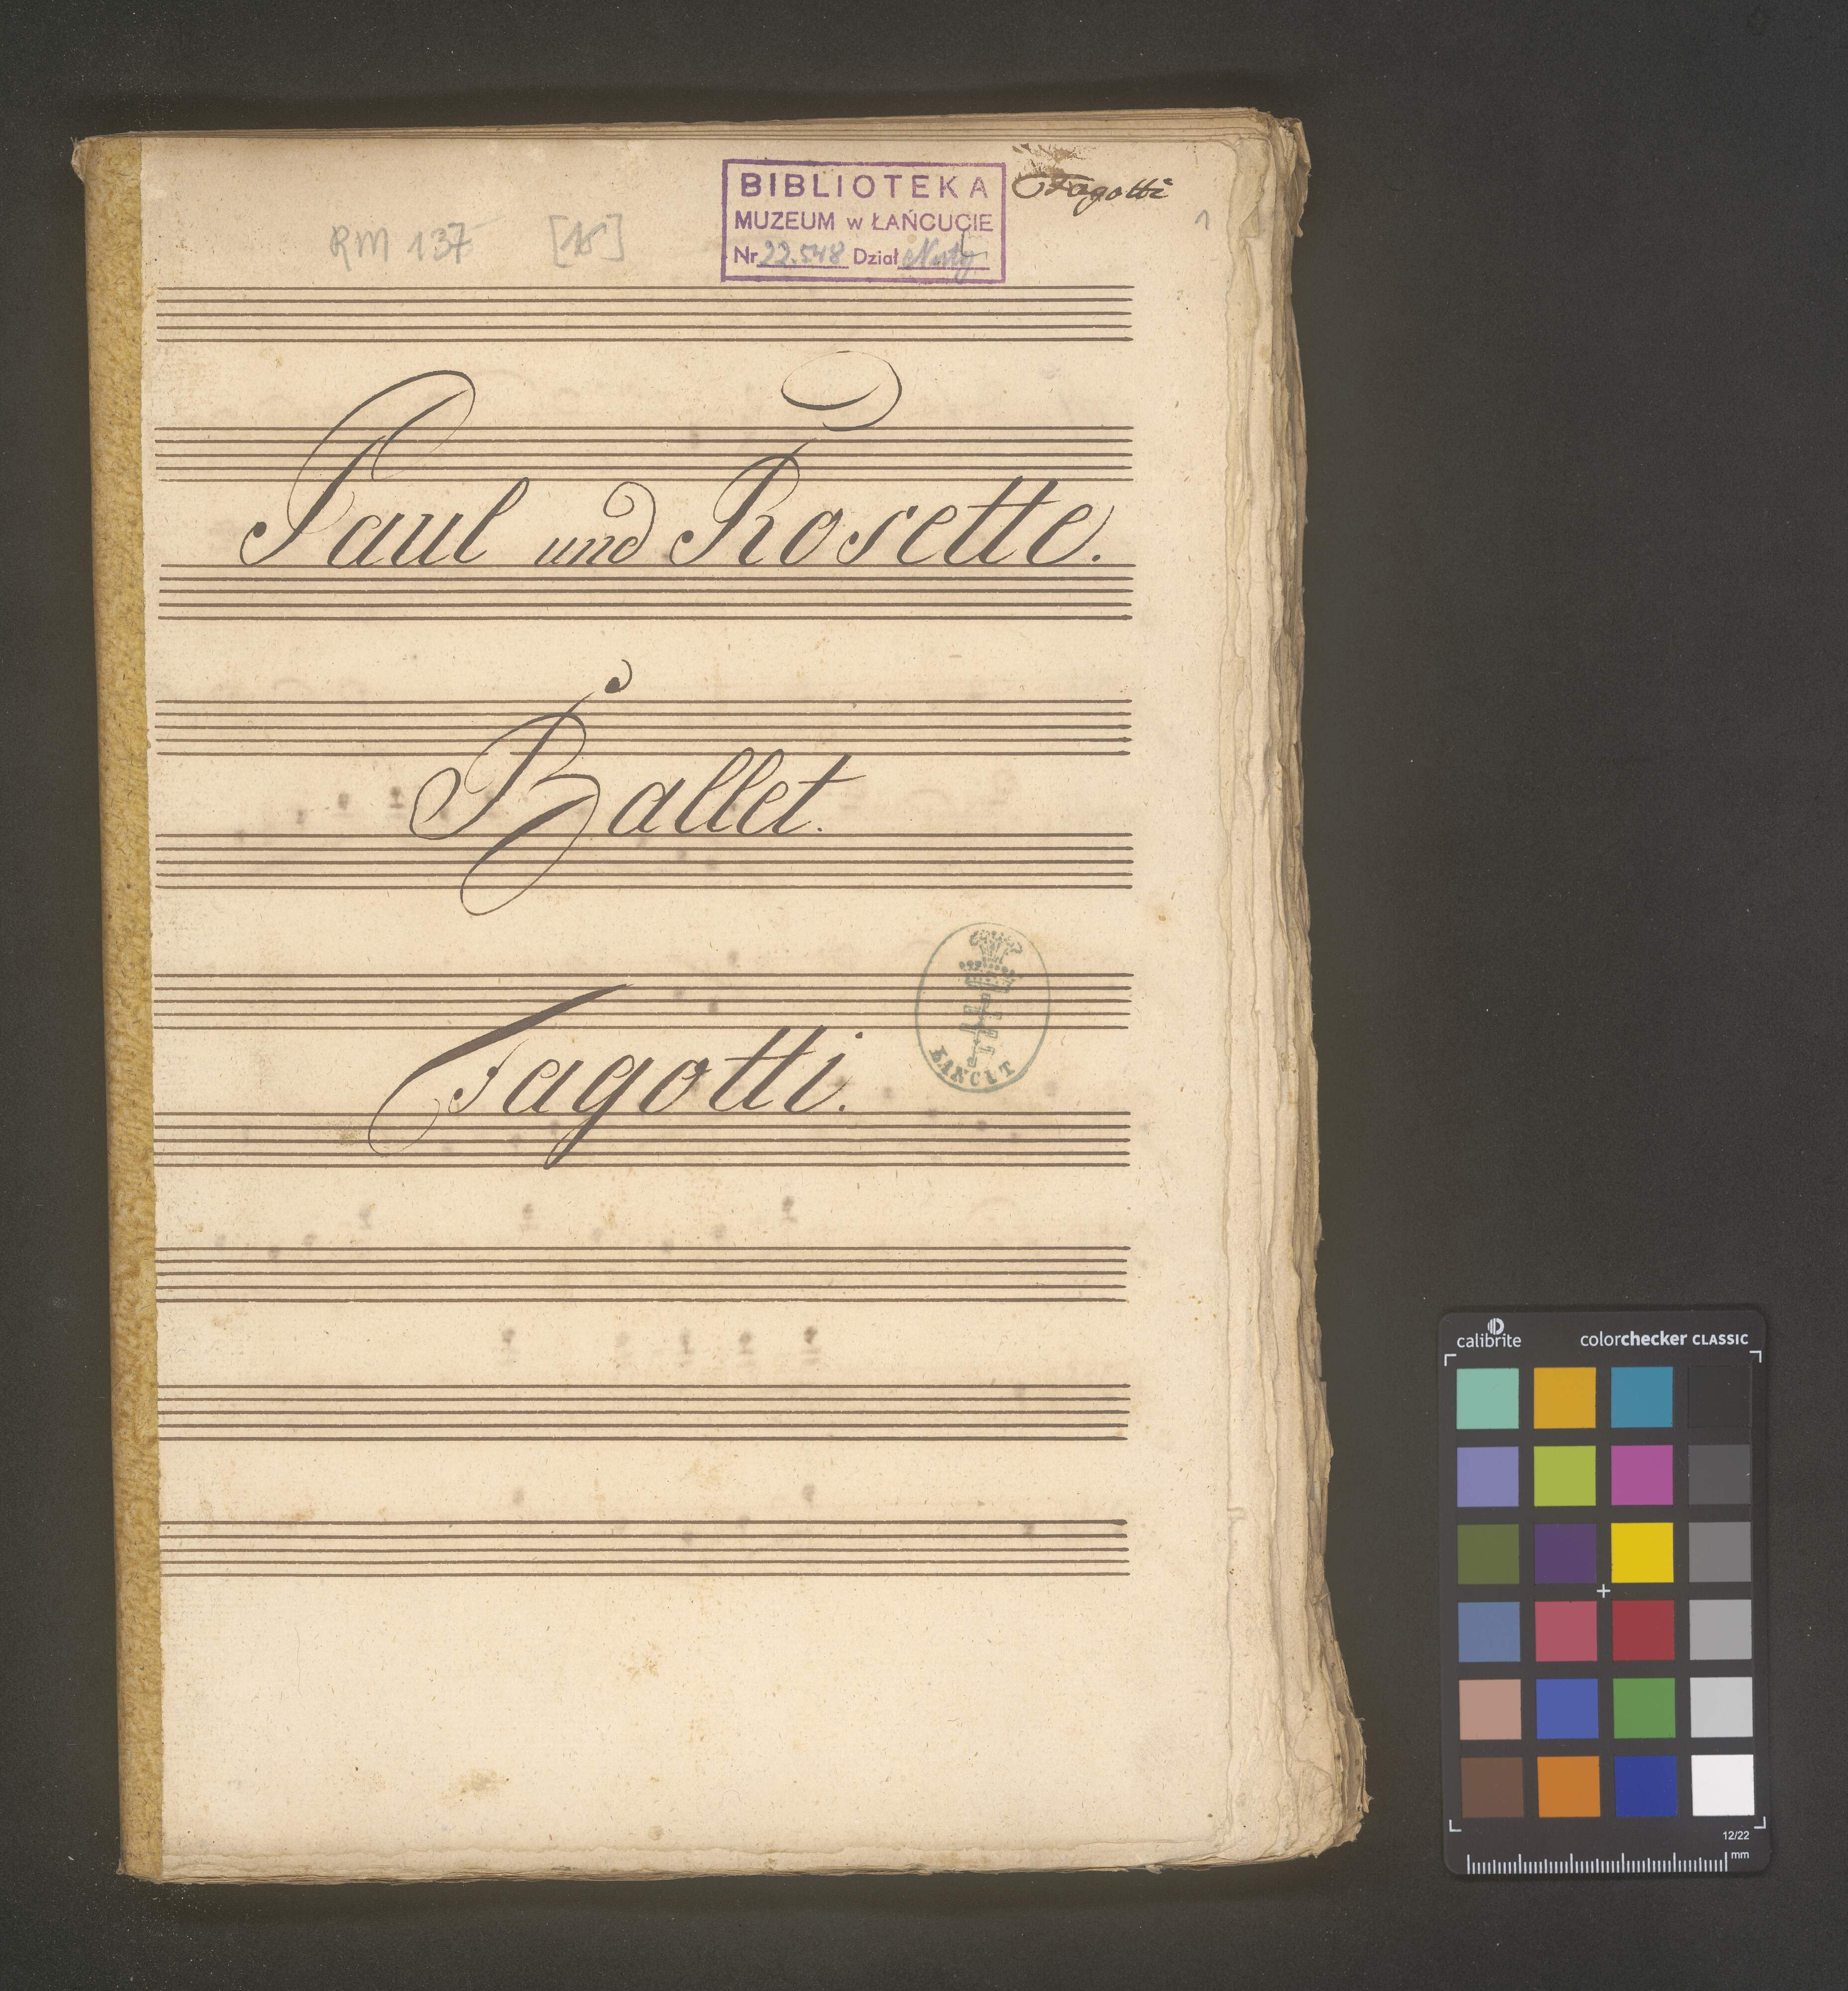 BIBLIOTEKA
MUZEUM w ŁAŃCUCIE
Nr 22.548 Dział Nuty
Fagotti
1
RM 137 [15]
Paul und Rosette.
Ballet.
Fagotti.
ŁANCUT
calibrite colorchecker CLASSIC
12/22
mm